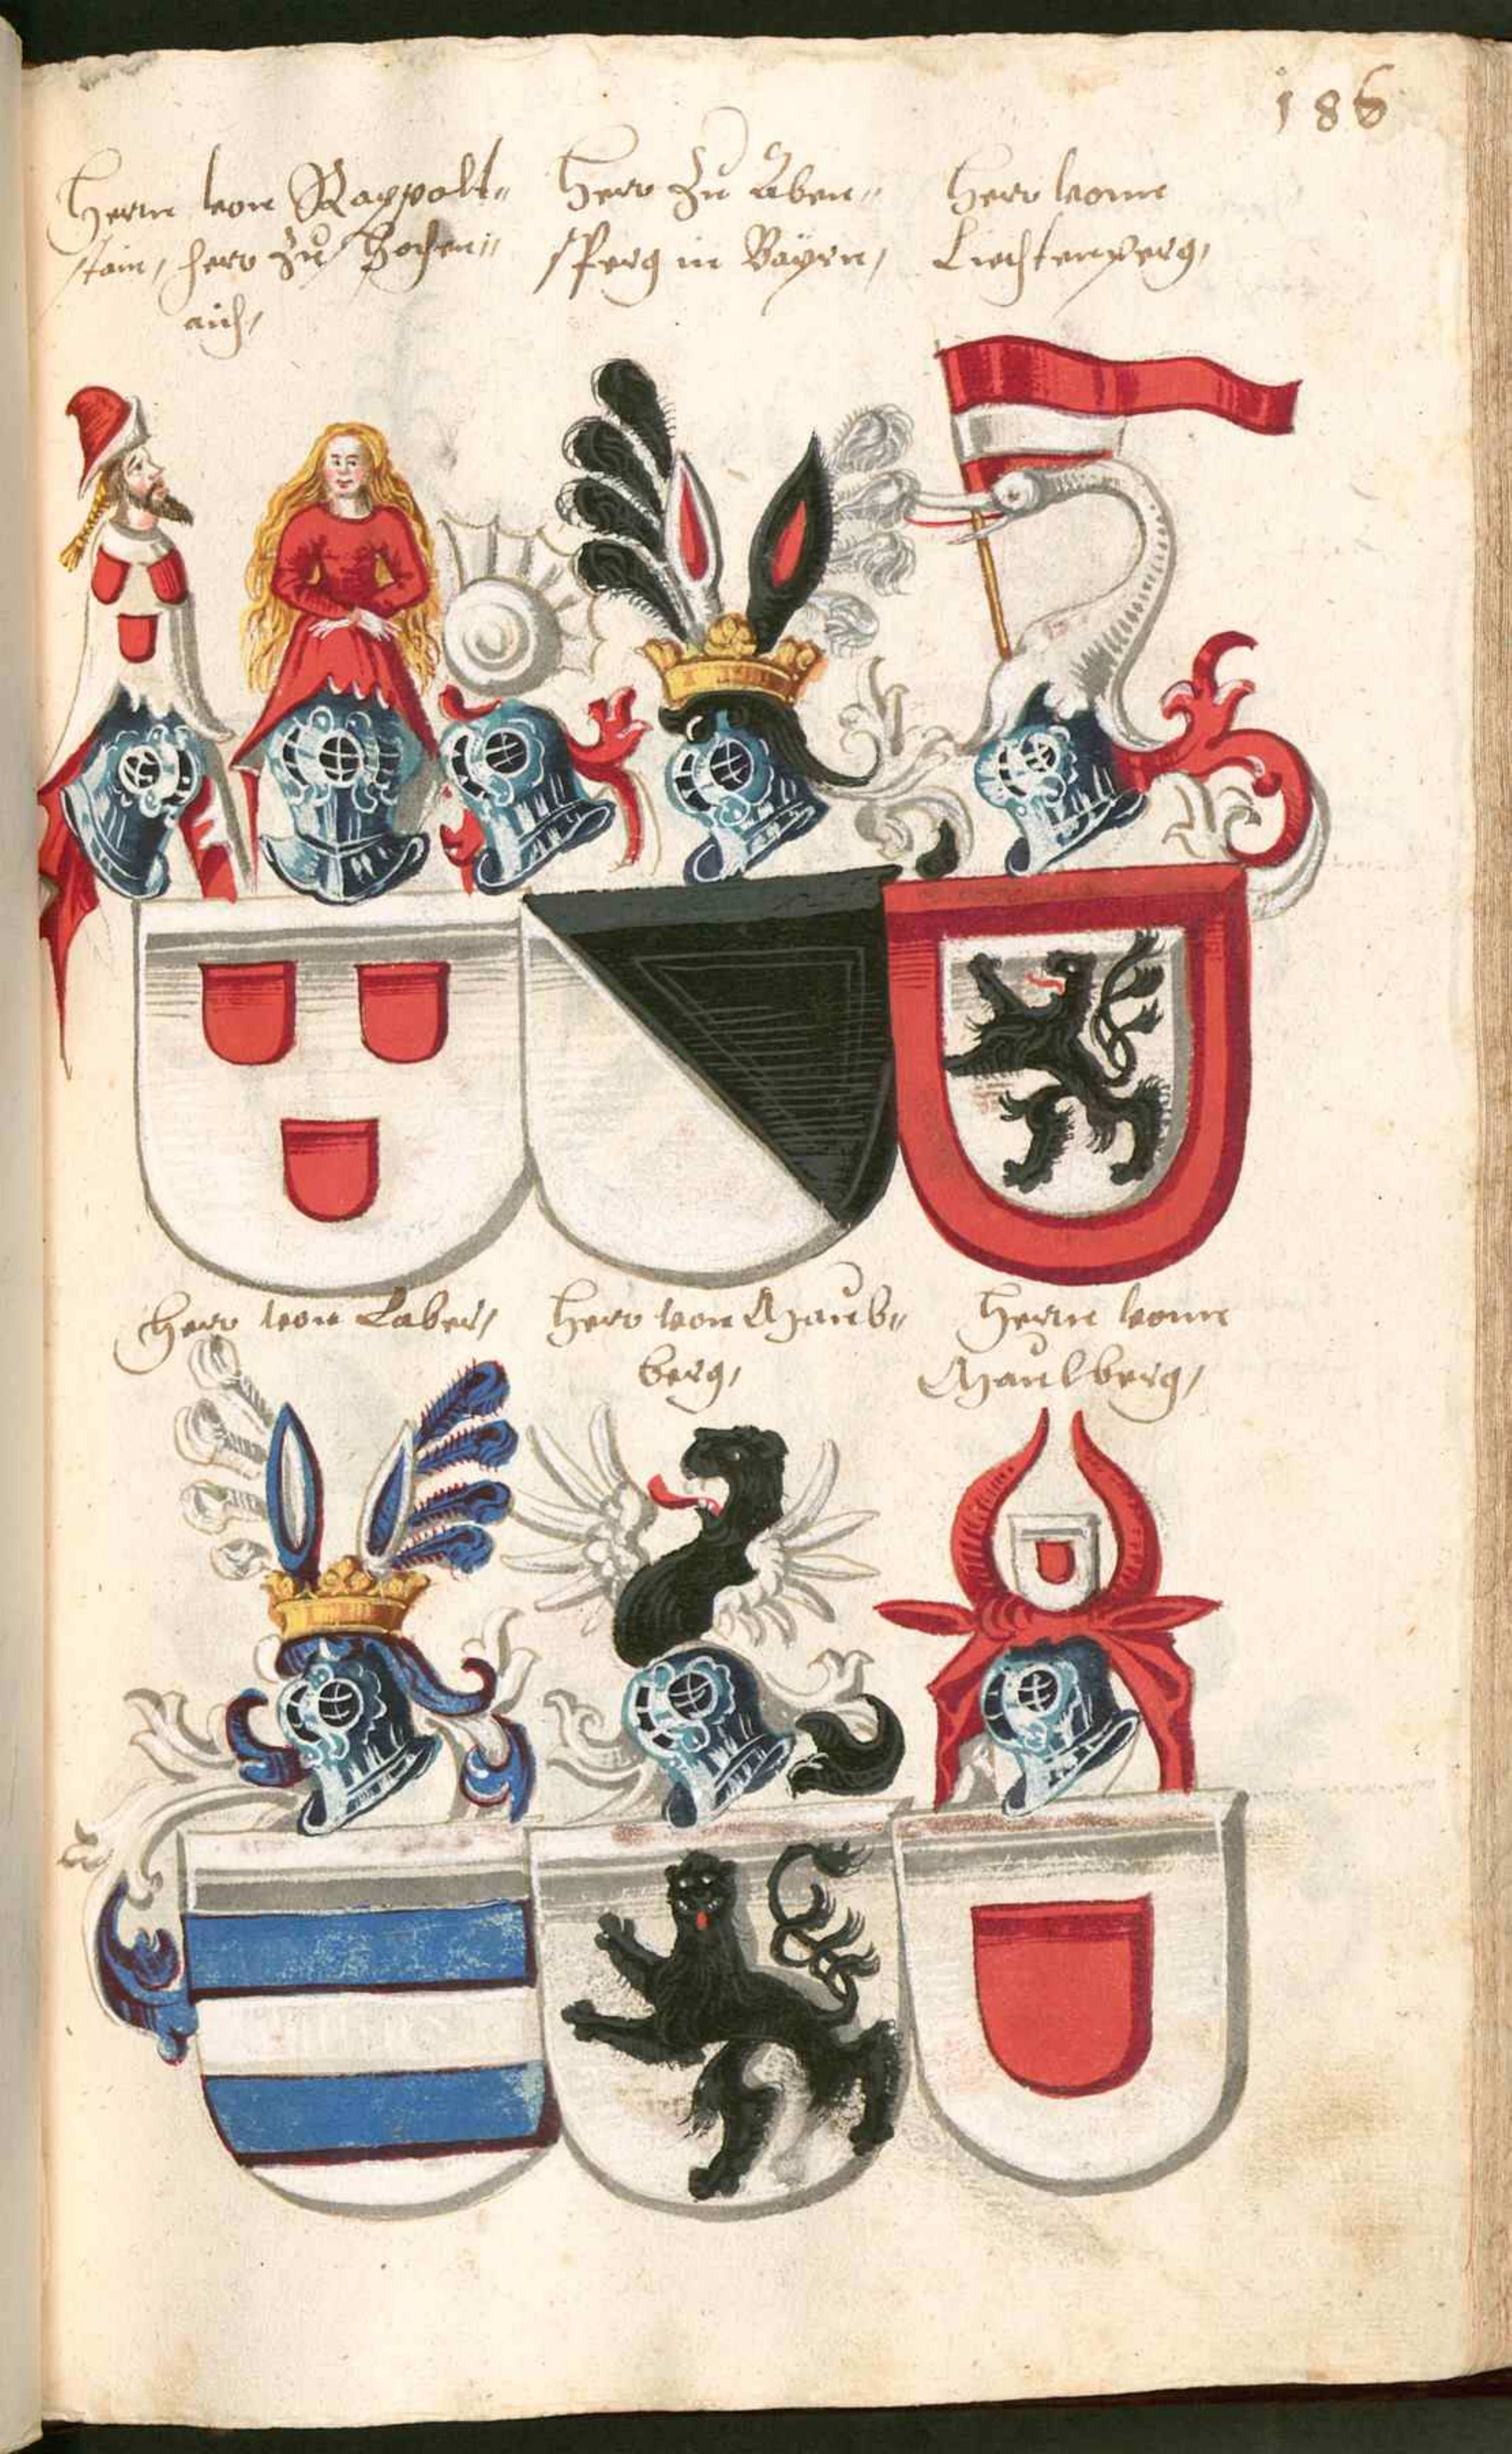 186
Herrn von Rappolt„
stain, herr zu Hochen„
aich,
Herr zu Aben„
sperg in Bayrn,
Herr vonn
Liechtenperg,
Herr von Laber,
Herr von Haub„
berg,
Herrn vonn
Haulberg,